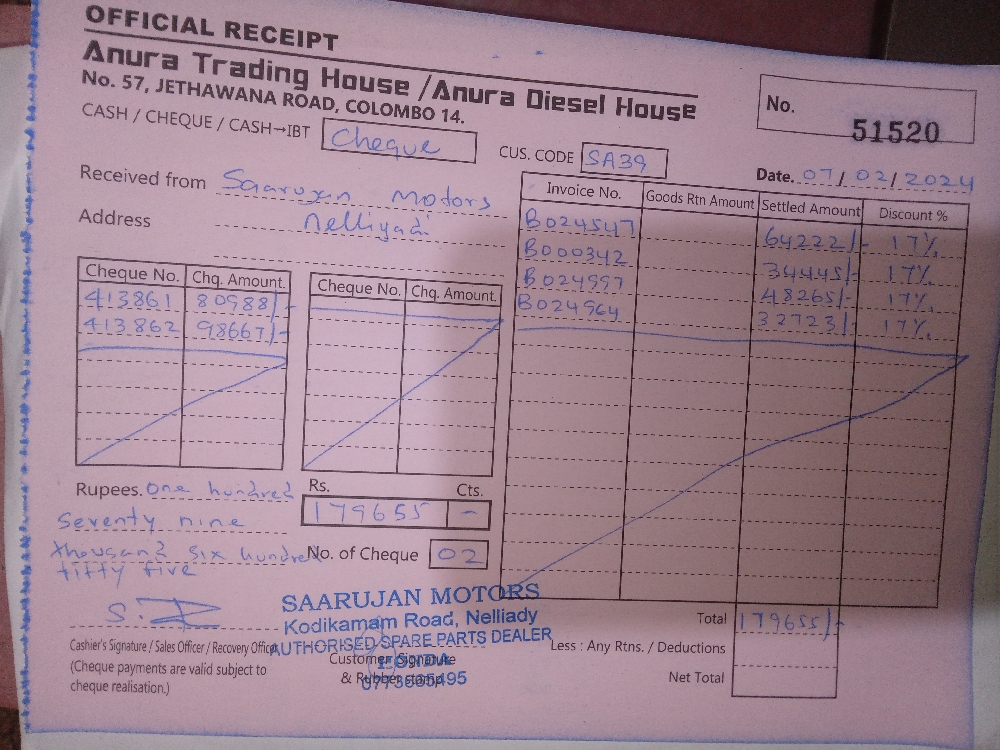 OFFICIAL RECEIPT
Anura Trading House / Anura Diesel House
No. 57, JETHAWANA ROAD, COLOMBO 14.
No. 51520
CASH / CHEQUE / CASH→IBT Cheque
CUS. CODE SA39
Date. 07/02/2024
Received from Saarujan Motors
Address Nelliyadi
Invoice No. Goods Rtn Amount Settled Amount Discount %
B024547 64222/- 17%
B000342 34445/- 17%
B024997 48265/- 17%
B024964 32723/- 17%
Cheque No. Chq. Amount. Cheque No. Chq. Amount.
413861 80988/-
413862 98667/-
Rupees. One hundred
Seventy nine
thousand six hundred
fifty five
Rs. Cts.
179655 -
No. of Cheque 02
Total 179655/-
Less : Any Rtns. / Deductions
Net Total
SAARUJAN MOTORS
Kodikamam Road, Nelliady
AUTHORISED SPARE PARTS DEALER
Cashier's Signature / Sales Officer / Recovery Officer
(Cheque payments are valid subject to
cheque realisation.)
Customer Signature
& Rubber stamp